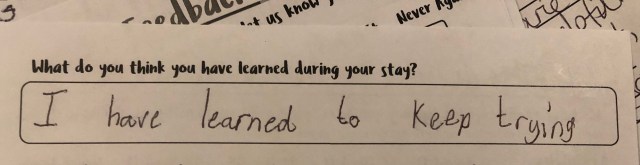 Feedback
let us know
Never
What do you think you have learned during your stay?
I have learned to keep trying